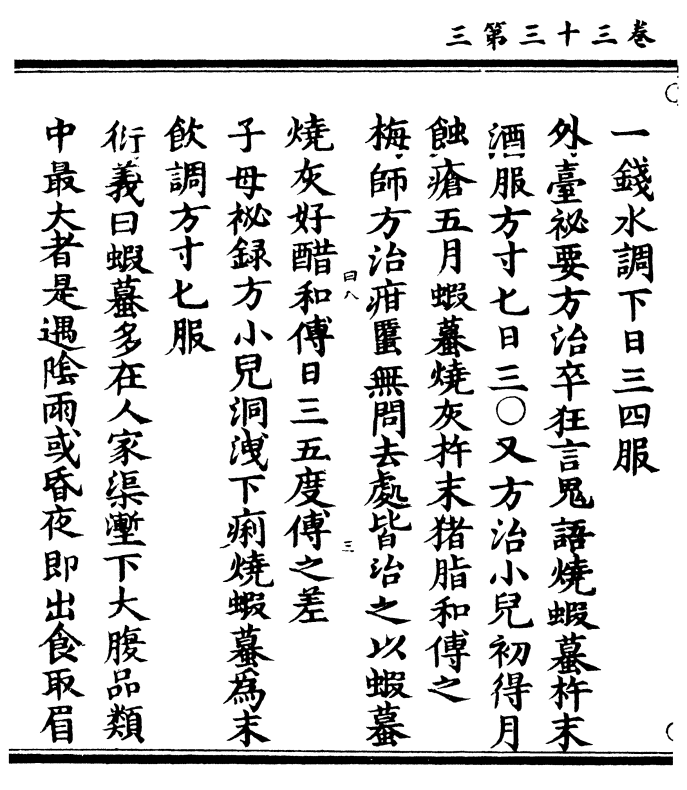 卷三十三第三
一錢水調下日三四服
外臺祕要方治卒狂言鬼語燒蝦蟇杵末
酒服方寸匕日三〇又方治小兒初得月
蝕瘡五月蝦蟇燒灰杵末猪脂和傅之
梅師方治疳䘌無問去處皆治之以蝦蟇
燒灰好醋和傅日三五度傅之差
子母祕録方小兒洞洩下痢燒蝦蟇為末
飲調方寸匕服
衍義曰蝦蟇多在人家渠壍下大腹品類
中最大者是遇隂雨或昏夜即出食取眉